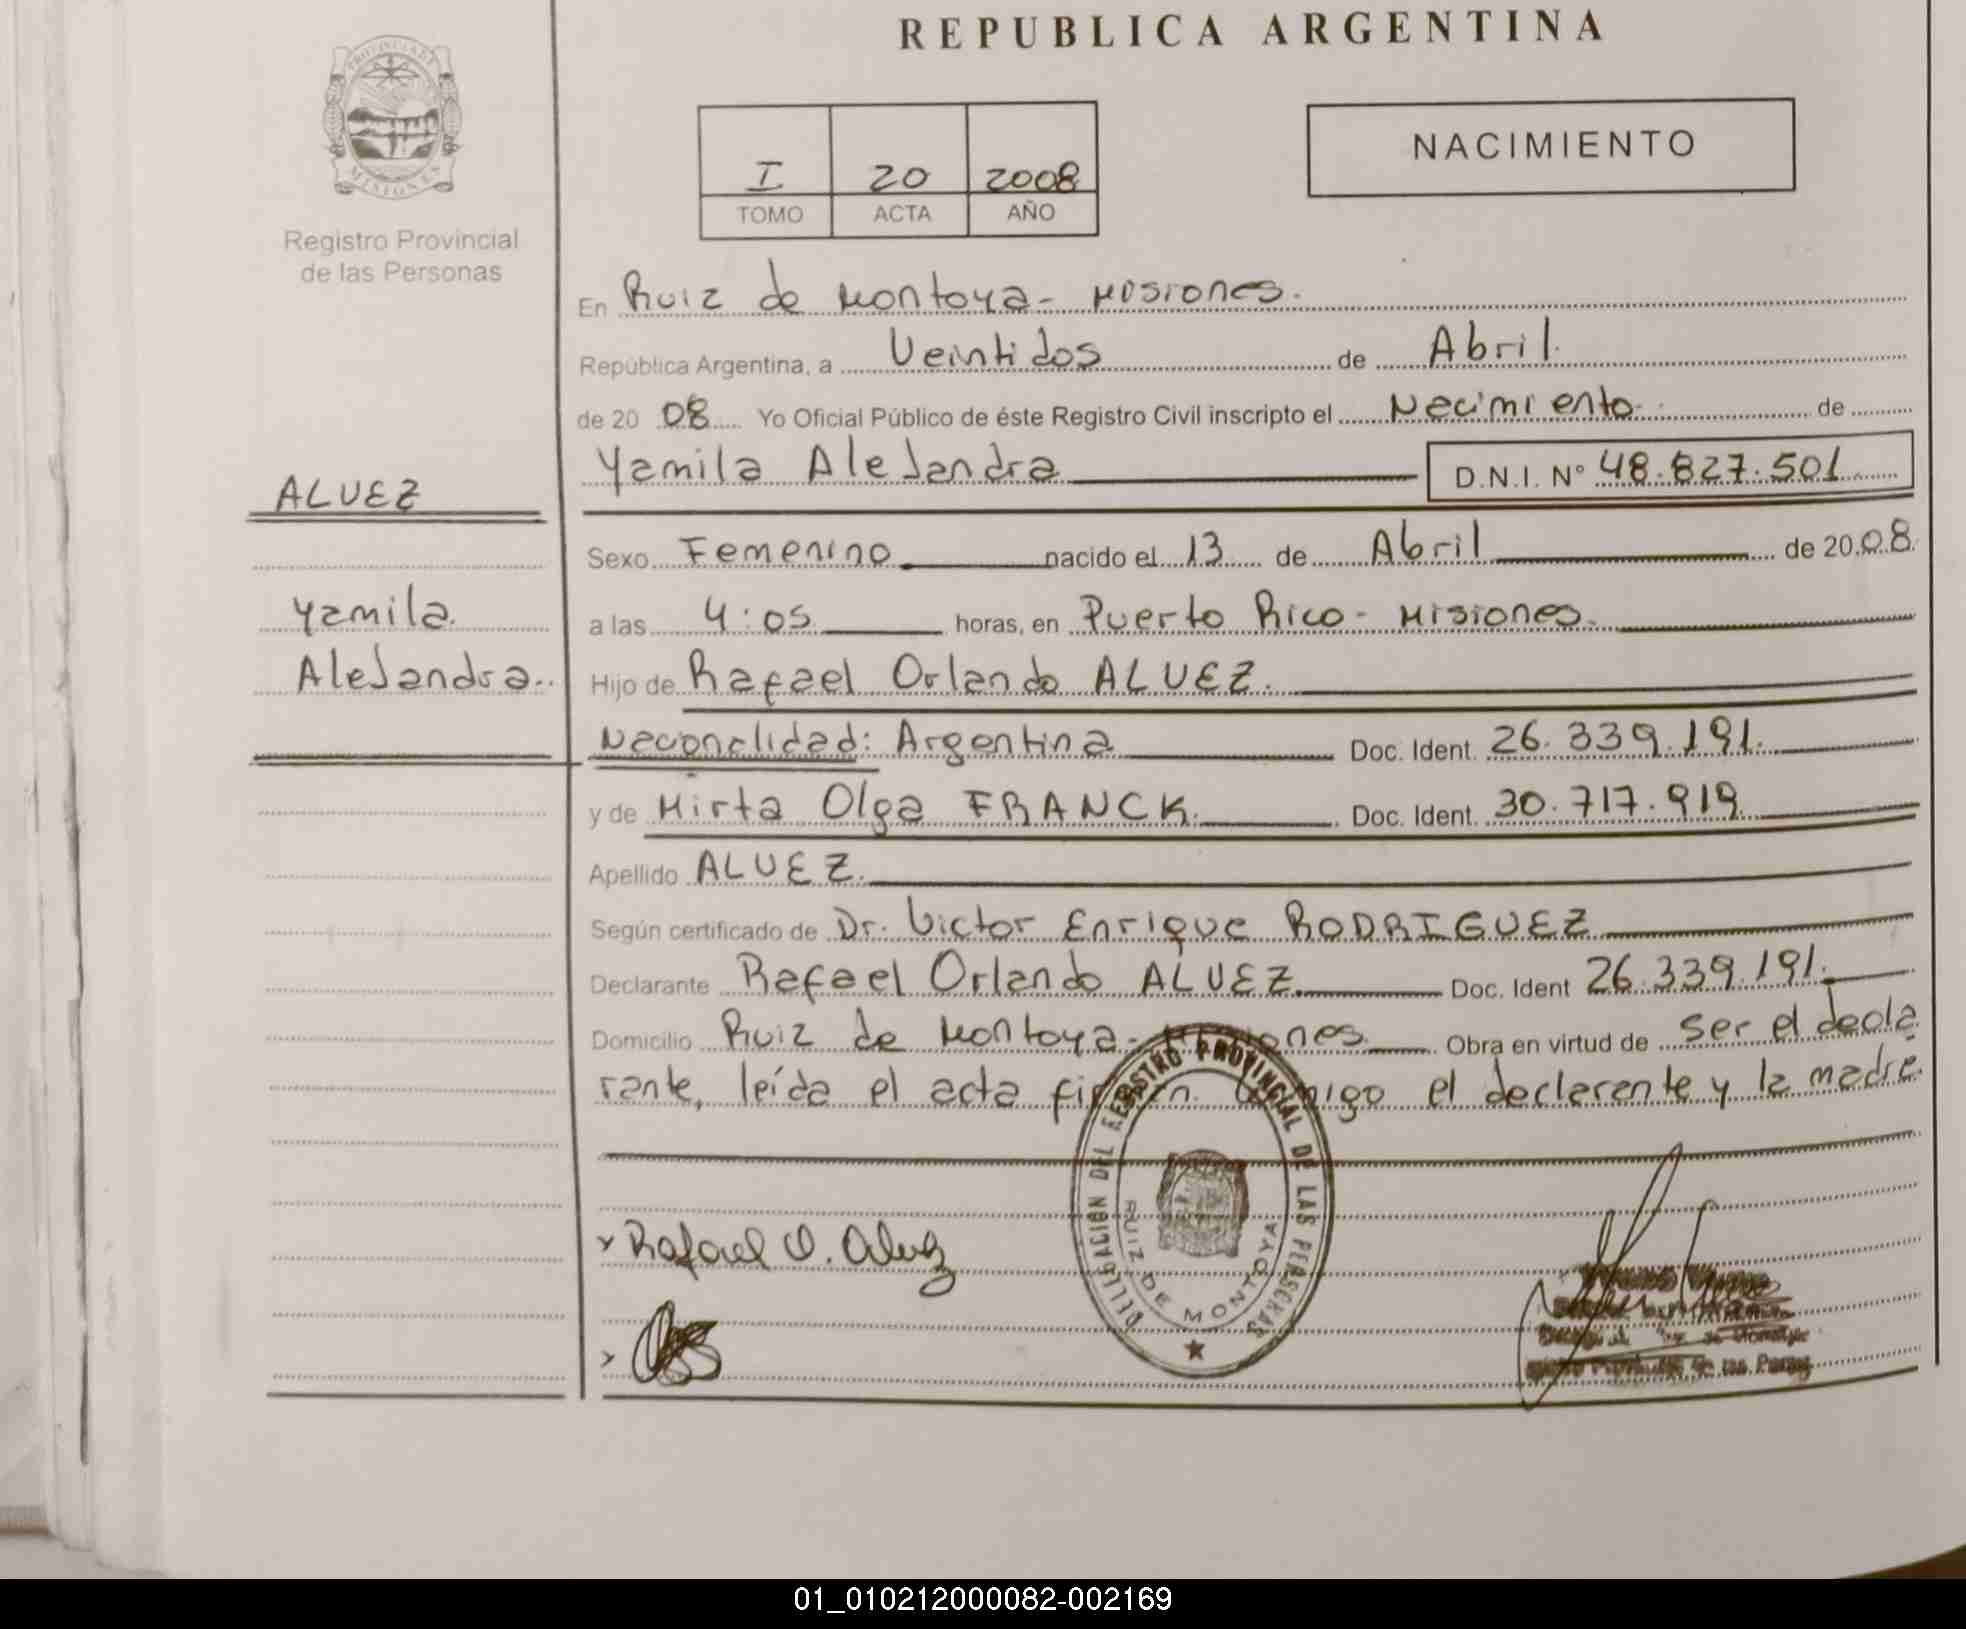 REPUBLICA ARGENTINA
PROVINCIA DE
MISIONES
Registro Provincial
de las Personas
I 20 2008
TOMO ACTA AÑO
NACIMIENTO
En Ruiz de Montoya - Misiones.
República Argentina, a Veintidos de Abril.
de 20 08 Yo Oficial Público de éste Registro Civil inscripto el Nacimiento de
Yamila Alejandra D.N.I. Nº 48.827.501
ALVEZ
Yamila
Alejandra
Sexo Femenino nacido el 13 de Abril de 20 08
a las 4:05 horas, en Puerto Rico - Misiones.
Hijo de Rafael Orlando ALVEZ.
Nacionalidad: Argentina Doc. Ident. 26.339.191.
y de Mirta Olga FRANCK. Doc. Ident. 30.717.919.
Apellido ALVEZ.
Según certificado de Dr. Victor Enrique RODRIGUEZ
Declarante Rafael Orlando ALVEZ. Doc. Ident 26.339.191.
Domicilio Ruiz de Montoya - Misiones Obra en virtud de ser el decla
rante, leída el acta firman conmigo el declarante y la madre.
DELEGACIÓN DEL REGISTRO PROVINCIAL DE LAS PERSONAS
RUIZ DE MONTOYA
Rafael O. Alvez
01_010212000082-002169